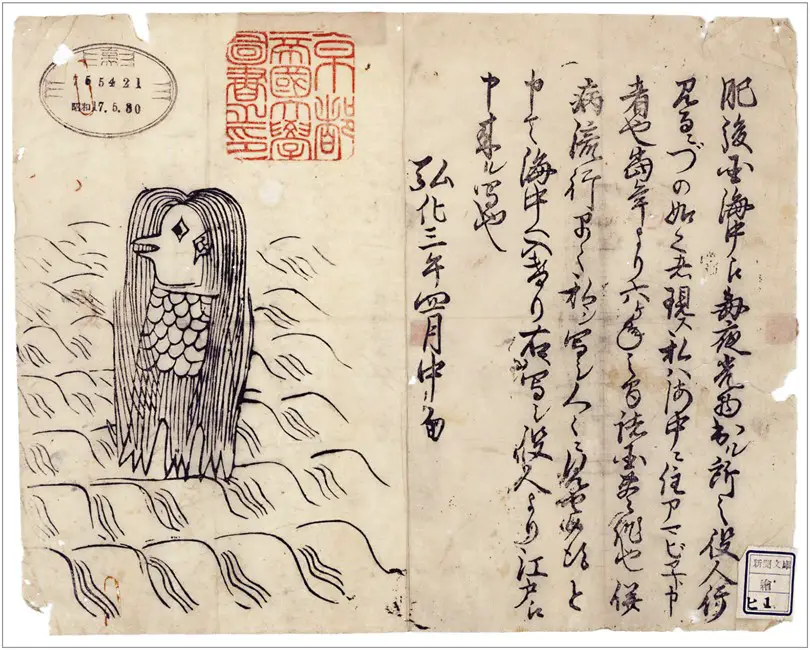 肥後国海中え毎夜光物出ル所之役人行
見るニづの如く者現ス私ハ海中ニ住アマビヱト申
者也當年より六ヶ年之間諸国豊作也併
病流行早々私ヲ写シ人々ニ見せ候得と
申て海中へ入けり右写シ役人より江戸え
申来ル写也
弘化三年四月中旬
京都
帝國大學
圖書之印
昭和17.5.30
新聞文庫
繪
ヒ 1